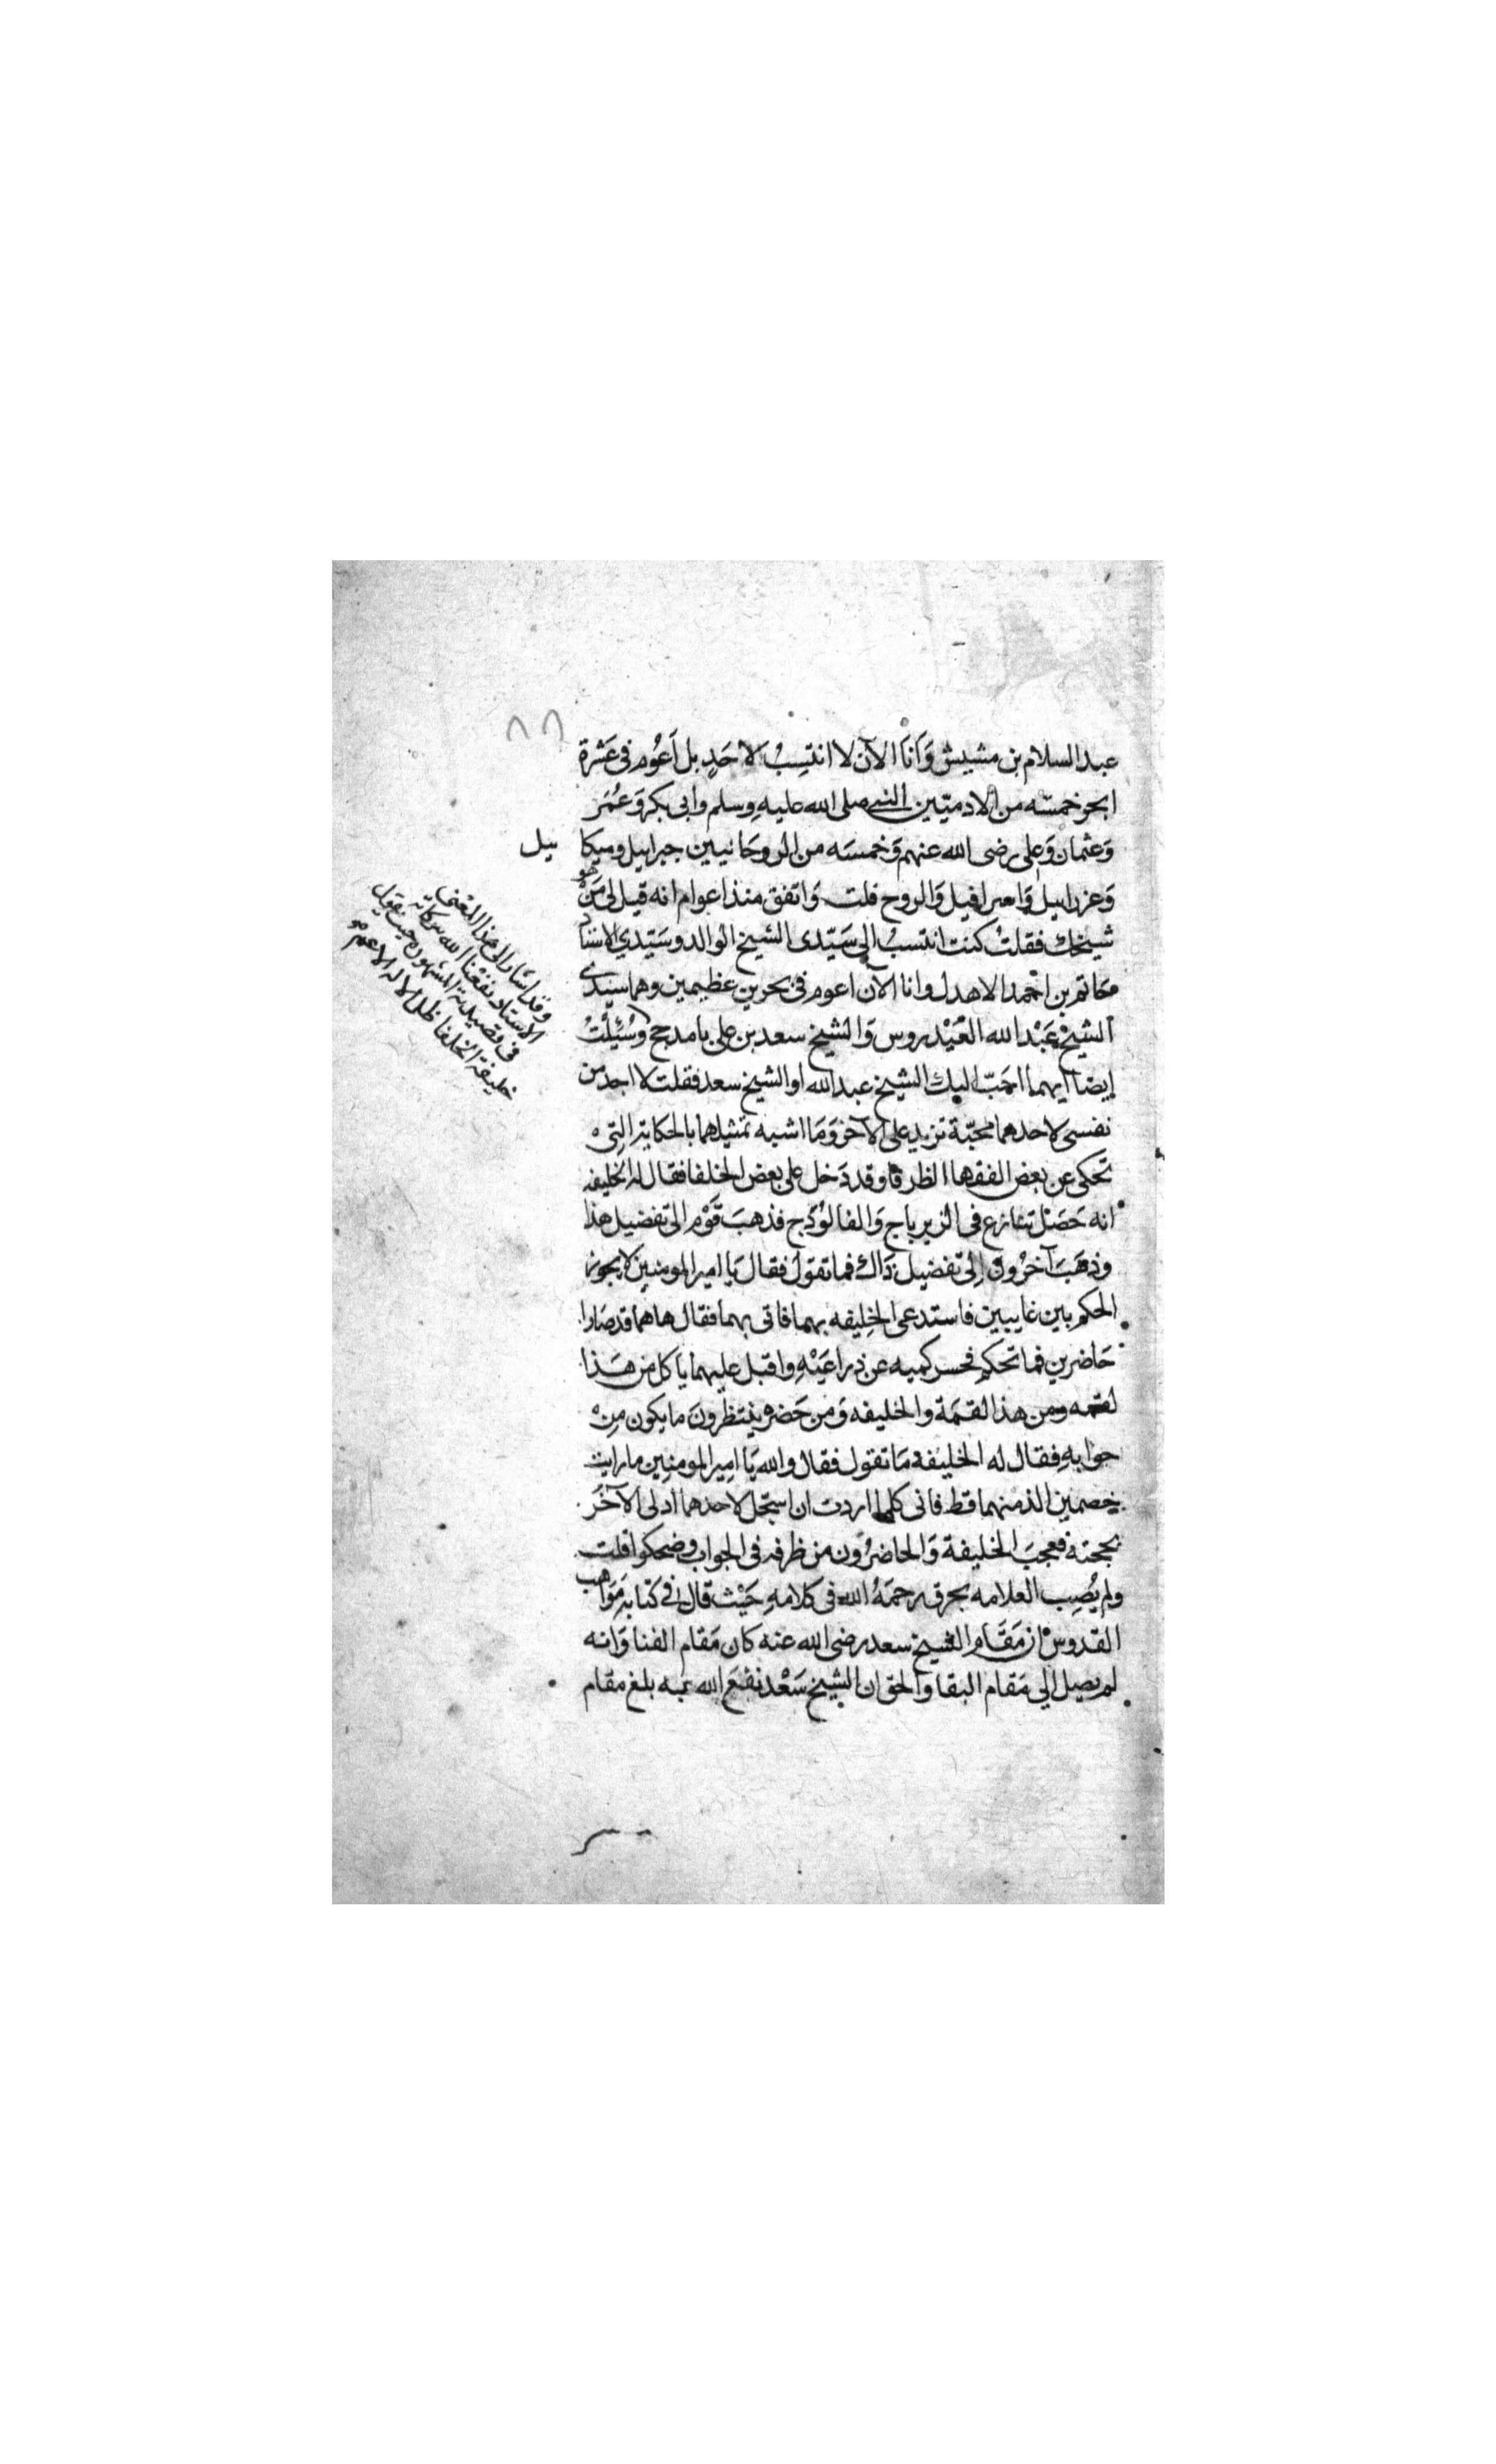 ٨٦
عبد السلام بن مشيش وَاَنَا الآن لا انتسِبُ لاحَدٍ بل اَعُوم فى عَشرة
ابحر خمسَه من الادميّين النبى صلى الله عليهِ وسلم وابى بكر وَعُمَر
وَعثمان وَعلى رضى الله عنهم وَخمسَه من الروحَانيين جبرايل وميكا ييل
وَعزراييل وَاسرافيل وَالروح قلت وَاتفق منذ اعوام انه قيل لى مَنْ هو
شيخك فقلتُ كنت انتسبُ الى سَيّدى الشيخ الوالد وسَيّدي الاستاد
حَاتم بن احْمد الاهدل وانا الآن اعوم فى بحرين عظيمين وهما سيّدى
الشيخ عَبْد الله العَيْدروس وَالشيخ سعد بن على بامدحج وسُئِلْتُ
ايضا ايهما احَبّ اليك الشيخ عبد الله او الشيخ سعد فقلت لا اجد من
نفسى لاحدهما محبّة تزيد على الآخر وَمَا اشبه تمثيلهما بالحكاية التى
تحكى عن بعض الفقها الظرفا وقد دَخل على بعض الخلفا فقال له الخليفه
انه حَصَل تنازع فى الزيرباج وَالفالوُذج فذهبَ قَوْم الى تفضيل هذا
وذهَبَ آخرُون اِلى تفضيل ذاك فما تقول فقال يَا امير المومنين لا يجوز
الحكم بين غايبين فاستدعى الخِليفه بهما فاتى بهما فقال هاهما قد صَارا
حَاضرين فما تحكم فحسر كميه عن ذراعَيْهِ واقبل عليهما ياكل من هَذا
لقمه ومن هذا لقمَة والخليفه وَمن حَضره ينتظرونَ ما يكون مِن
جوابهِ فقال له الخليفة مَا تقول فقال والله يَا امِير المومنِين ما رايت
خصمين الذ منهما قط فانى كلما اردت ان اسجّل لاحدهما ادلى الآخرُ
بحجته فعجبَ الخليفة وَالحاضرُون من ظرفه فى الجواب وضحكوا قلت
ولم يُصِب العلامه بحرق رحمَهُ الله فى كلامهِ حَيْث قال فى كتابه مَوَاهب
القدوسْ ان مَقَام الشيخ سعد رضى الله عنه كان مَقام الفنا وَانه
لم يصِل الي مَقام البقا والحق ان الشيخ سَعْد نفعَ الله به بلغ مقام
وقد اشار الى هذا المعْنى
الاستاد نفعنا الله ببركاته
فى قصيدته المشهورة حيث يقول
خليفة الخلفا ظل الاله الاعم هو